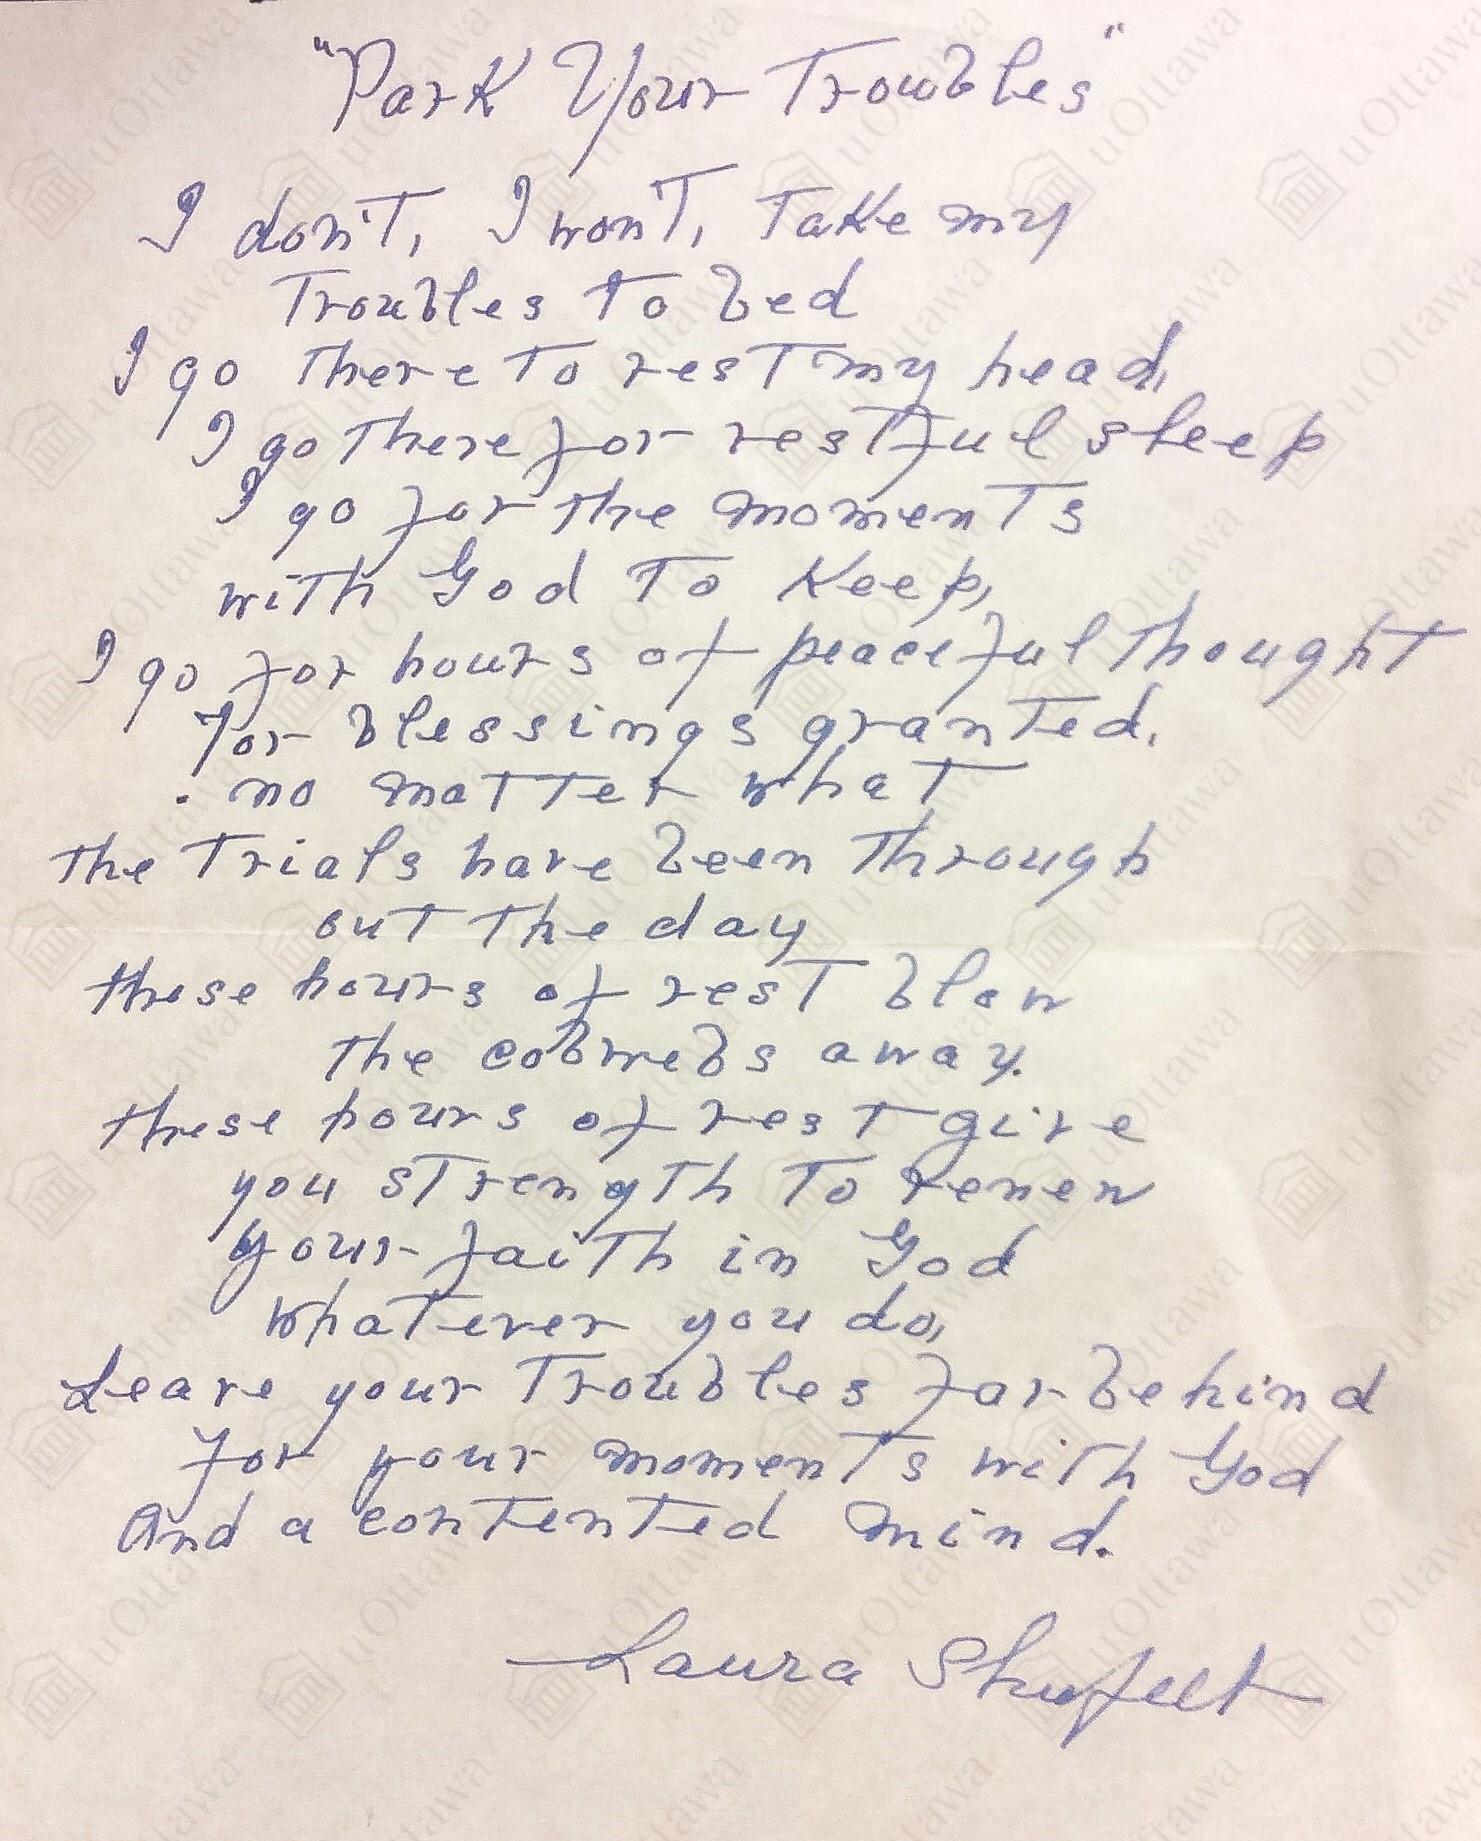 "Park Your Troubles"
I don't, I won't, Take my
Troubles To bed
I go There To rest my head,
I go There for restful sleep
I go for the moments
with God To Keep,
I go for hours of peaceful Thought
For blessings granted,
. no matter what
The Trials have been Through
out The day
these hours of rest blow
The cobwebs away.
these hours of rest give
you strength To renew
your faith in God
whatever you do,
Leave your Troubles far behind
for your moments with God
And a contented mind.
Laura Shufelt
uOttawa